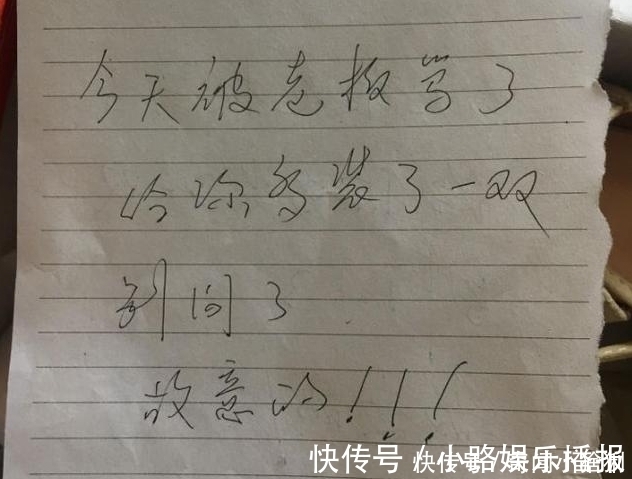 今天被老板骂了
给你多装了一双
别问了
故意的!!!
快传号/小路娱乐播报